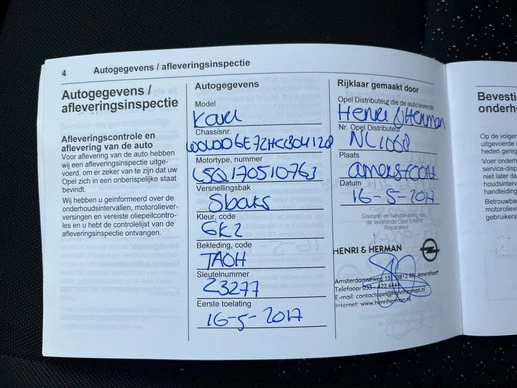 4 Autogegevens / afleveringsinspectie
Autogegevens /
afleveringsinspectie
Afleveringscontrole en
aflevering van de auto
Voor aflevering van de auto hebben
wij een afleveringsinspectie uitge-
voerd, om er zeker van te zijn dat uw
Opel zich in een onberispelijke staat
bevindt.
Wij hebben u geïnformeerd over de
onderhoudsintervallen, motoroliever-
versingen en vereiste oliepeilcontro-
les en u hebt de controlelijst van de
afleveringsinspectie ontvangen.
Autogegevens
Model
Karl
Chassisnr.
Motortype, nummer
Versnellingsbak
5baks
Kleur, code
GK2
Bekleding, code
TAOH
Sleutelnummer
23277
Eerste toelating
16-5-2017
Rijklaar gemaakt door
Opel Distributeur die de auto leverde
Henri & Herman
Nr. Opel Distributeur
NL1068
Plaats
amersfoort
Datum
16-5-2017
Stempel en handtekening van
de leverende Opel Erkend
Reparateur
HENRI & HERMAN
Amersfoort
E-mail: contactopel@henriherman.nl
Internet: www.henriherman.nl
Bevesti
onderh
Op de volge
uitgevoerde
heden gereg
Voer onderh
service-disp
niet later da
houdsinterv
handelingen
Betrouwbar
motorolieve
gebeurd, ku